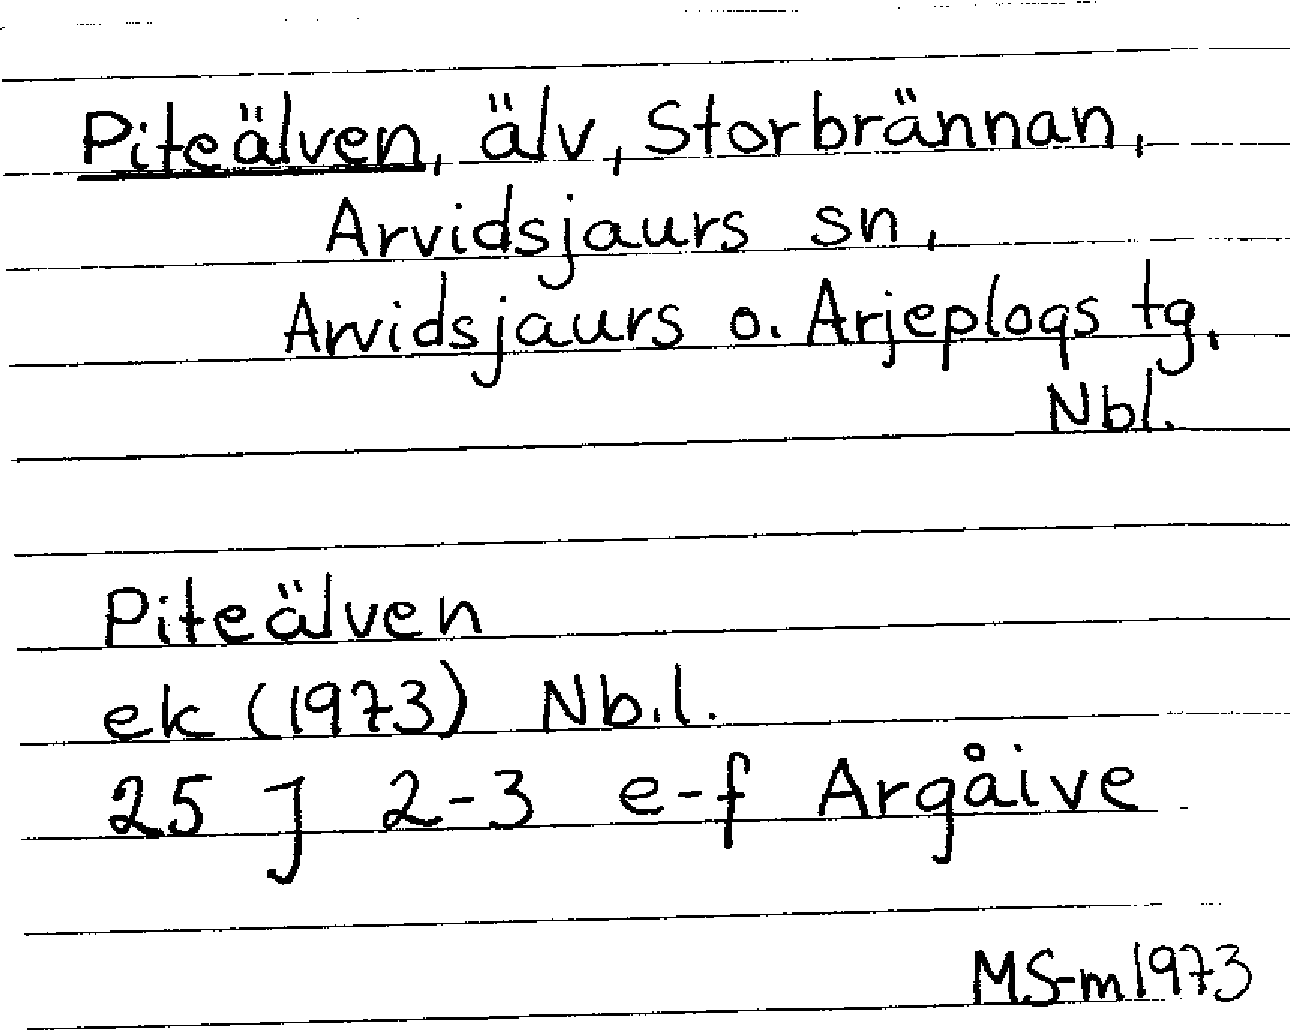 Piteälven, älv, Storbrännan,
Arvidsjaurs sn,
Arvidsjaurs o. Arjeplogs tg,
Nbl.
Piteälven
ek (1973) Nb.l.
25 J 2-3 e-f Argåive
MS-m 1973